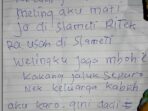 meling aku mati
Jo di slameti Ritek
Ra usah di slameti
Welingku Jogo mboh?
Kakang jaluk sepuro
Nek keluarga kabeh
aku karo. gini dadi